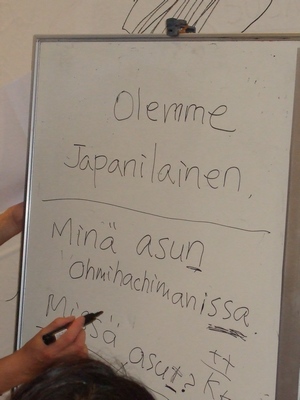 Olemme
Japanilainen.
Minä asun
Ohmihachimanissa.
Missä
asut?
tt
K